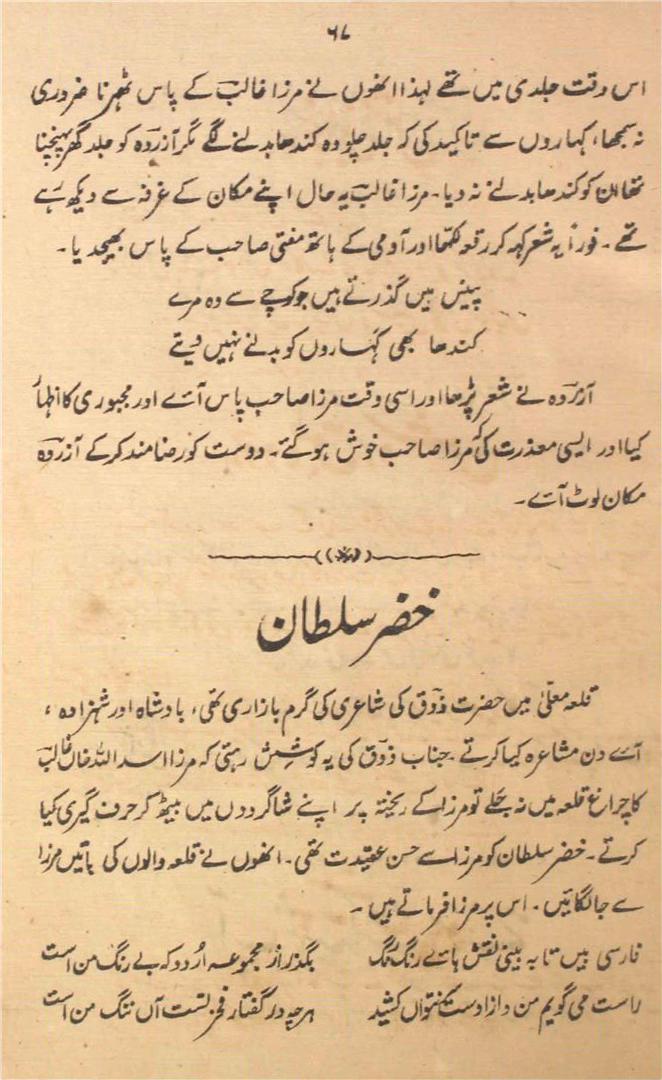 ۶۷
اس وقت جلدی میں تھے لہذا انھوں نے مرزا غالب کے پاس ٹھہرنا ضروری
نہ سمجھا، کہاروں سے تاکید کی کہ جلد چلو وہ کندھا بدلنے لگے مگر آزردہ کو جلد گھر پہنچنا
تھا ان کو کندھا بدلنے نہ دیا۔ مرزا غالب یہ حال اپنے مکان کے غرفہ سے دیکھ رہے
تھے۔ فوراً یہ شعر کہہ کر رقعہ لکھا اور آدمی کے ہاتھ مفتی صاحب کے پاس بھیجدیا۔
پینس میں گذرتے ہیں جو کوچے سے وہ مرے
کندھا بھی کہاروں کو بدلنے نہیں دیتے
آزردہ نے شعر پڑھا اور اسی وقت مرزا صاحب پاس آئے اور مجبوری کا اظہار
کیا اور ایسی معذرت کی کہ مرزا صاحب خوش ہوگئے۔ دوست کو رضامند کرکے آزردہ
مکان لوٹ آئے۔
خضر سلطان
قلعہ معلیٰ میں حضرت ذوق کی شاعری کی گرم بازاری تھی، بادشاہ اور شہزادہ،
آئے دن مشاعرہ کیا کرتے۔ جناب ذوق کی یہ کوشش رہتی کہ مرزا اسد اللہ خاں غالب
کا چراغ قلعہ میں نہ جلے تو مرزا کے ریختہ پر اپنے شاگردوں میں بیٹھ کر حرف گیری کیا
کرتے۔ خضر سلطان کو مرزا سے حسن عقیدت تھی۔ انھوں نے قلعہ والوں کی باتیں مرزا
سے جا لگائیں۔ اس پر مرزا فرماتے ہیں۔
فارسی بیں تا بہ بینی نقش ہائے رنگ رنگ بگذر از مجموعہ اردو کہ بے رنگ من است
راست می گویم من و از راست سر نتواں کشید ہرچہ در گفتار فخر تست آں ننگ من است